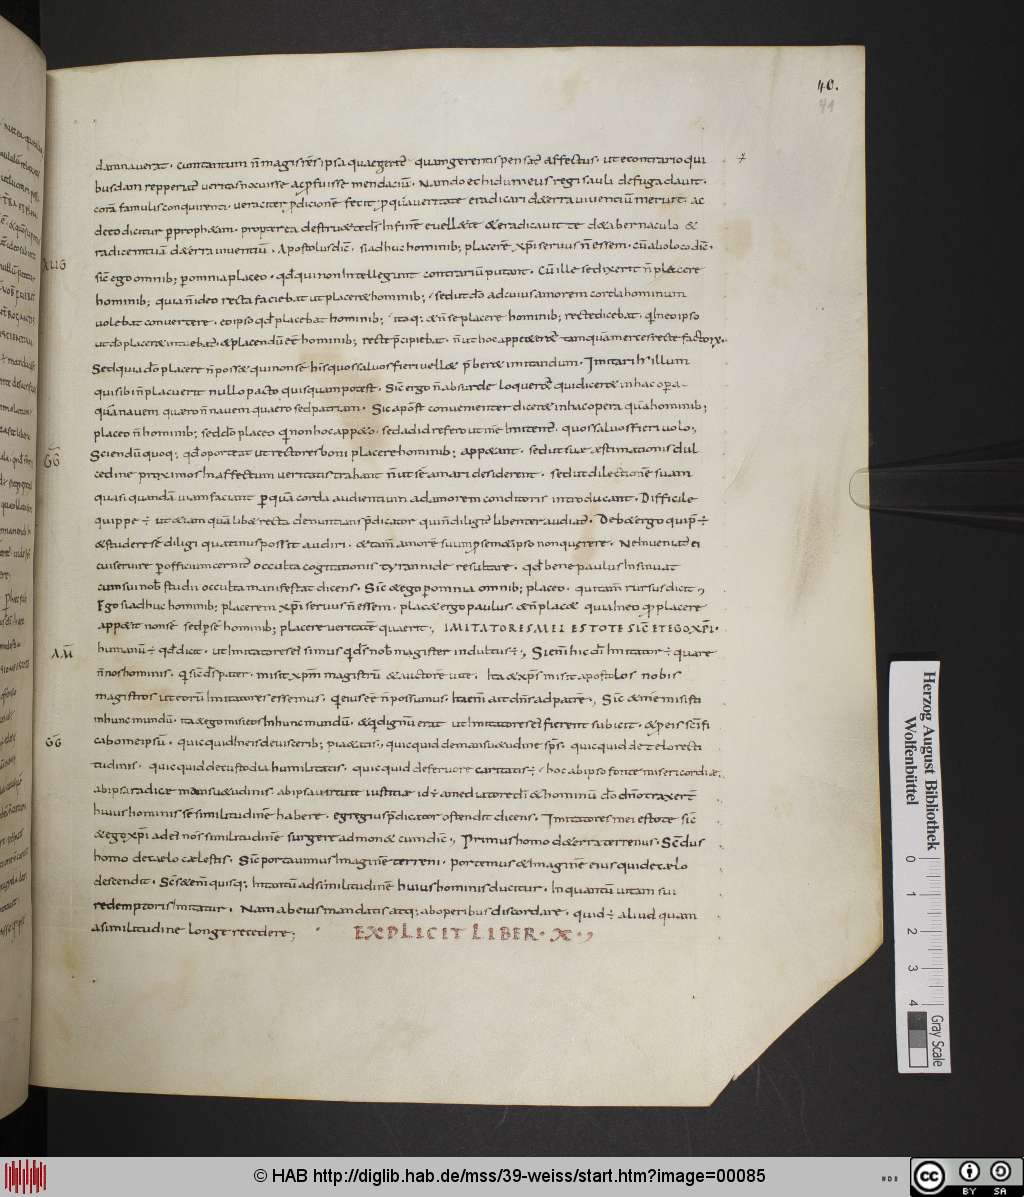 40.
41
damnaverat. cum tantum n̄ magis rēs ipsa quae geritē quam gerentis pensat affectus. ut e contrario qui
busdam repperitē veritas nocuisse ac pfuisse mendaciū. Nam doech idumeus regi sauli de fuga david.
corā famulis con
veraciter pditionē fecit, p qua veritate eradicari de terra viventiū meruit. ac
deo dicitur p propham.
destruet te ds In finē evellet te & eradicavit te de tabernaculo &
radicem tuā de terra viventiū. Apostolus dic̄. si adhuc hominib; placerē xp̄i servus n̄ essem. cū alio loco dic̄.
AUG
sic̄ ego omnib; p omnia placeo. qd̄ qui non Intellegunt contrariū putant. Cū ille se dixerit n̄ placere
hominib; quia n̄ ideo recta faciebat ut placeret hominib; sed ut dō ad cuius amorem corda hominum
volebat convertere. eo ipso qd̄ placebat hominib; itaq; & n̄ se placere hominib; recte dicebat. qn̄ In eo ipso
ut dō placeret
& placendū eē hominib; recte p̄cipiebat. n̄ ut hoc
tamquā merces recte factorx.
Sed quia dō placere n̄ posset qui non se his quos salvos fieri vellet p̄beret imitandum. Imitari h̓ illum
qui sibi n̄ placuerit nullo pacto quisquam potest. Sic̄ ergo n̄ absurde loqueret̄ qui diceret in hac opera
quā navem quaero n̄ navem quaero sed patriam. Sic apost̄ convenienter diceret in hac opera quā hominib;
placeo n̄ hominib; sed dō placeo q̄ non hoc
sed ad id refero ut me Imitent̄. quos salvos fieri volo;
GḠ
Sciendū quoq; qd̄ oporteat ut rectores boni placere hominib; appetant. sed ut suae aestimationis dul
cedine proximos In affectum veritatis trahant n̄ ut sē amari desiderent. sed ut dilectionē suam
quasi quandā viam faciant p quā corda audientium ad amorem conditoris introducant. Difficile
quippe ÷ ut etiam quālibet recta denuntians p̄dicator qui n̄ diligit̄ libenter audiat̄. Debet ergo qui p̄÷
& studere sē diligi quatinus possit audiri. & tam̄ amorē suum p semet ipso non querere. Ne Inveniat̄ ei
cui servire p officium cernit̄ occulta cogitationis tyrannide resultare. qd̄ bene paulus Insinuat
cum sui nob̄ studii occulta manifestat dicens. Sic̄ & ego p omnia omnib; placeo. qui tam̄ rursus dicit
Ego si adhuc hominib; placerem xp̄i servus n̄ essem. placet ergo paulus. & n̄ placet quia In eo q̄ placere
appetit non sē sed p sē hominib; placere veritatē querit, IMITATORES MEI ESTOTE SIC̄ ET EGO XP̄I.
AM̄
humanū ÷ qd̄ dicit. ut Imitatores ei simus que ds̄ nob̄ magister indultus ÷, Si enī hic dī Imitator ÷ quare
n̄ nos hominis. q̄ sic̄ ds̄ pater. misit xp̄m magistrū & auctorē vitae. Ita & xp̄s misit apostolos nobis
magistros ut eorū Imitatores essemus. q̄ eius eē n̄ possumus. Itaem̄ ait dn̄s ad patrē, Sic̄ & me misisti
in hunc mundū. ita & ego misi eos In hunc mundū. & q̄ dignū erat ut Imitatores ei fierent subicit. & p eis sc̄ifi
GḠ
cabo me ipsū. quicquid In eis deus erib; pietatis, quicquid de mansuetudine sp̄s. quicquid de zelo recti
tudinis. quicquid de custodia humilitatis. quicquid de fervore caritatis ÷ hoc ab ipso fonte misericordiae.
ab ipsa radice mansuetudinis. ab ipsa virtute iustitiae id ÷ a mediatore dī & hominū dō dn̄o traxer̄t
huius hominis sē similitudinē habere. egregius p̄dicator ostendit dicens. Imitatores mei estote sic̄
& ego xp̄i ad eī nos similitudinē surgere admonet cum dic̄, Primus homo de terra terrenus. Sc̄dus
homo de caelo caelestis. Sic̄ portavimus Imaginē terreni. portemus & Imaginē eius qui de caelo
descendit. Sc̄s etem̄ quisq; In tantū ad similitudinē huius hominis ducitur. In quantū vitam sui
redemptoris Imitatur. Nam ab eius mandatis atq; ab operibus discordare. quid ÷ aliud quam
a similitudine longe recedere;
EXPLICIT LIBER. X.
Herzog August Bibliothek
Wolfenbüttel
0 1 2 3 4
Gray Scale
© HAB http://diglib.hab.de/mss/39-weiss/start.htm?image=00085
cc BY SA